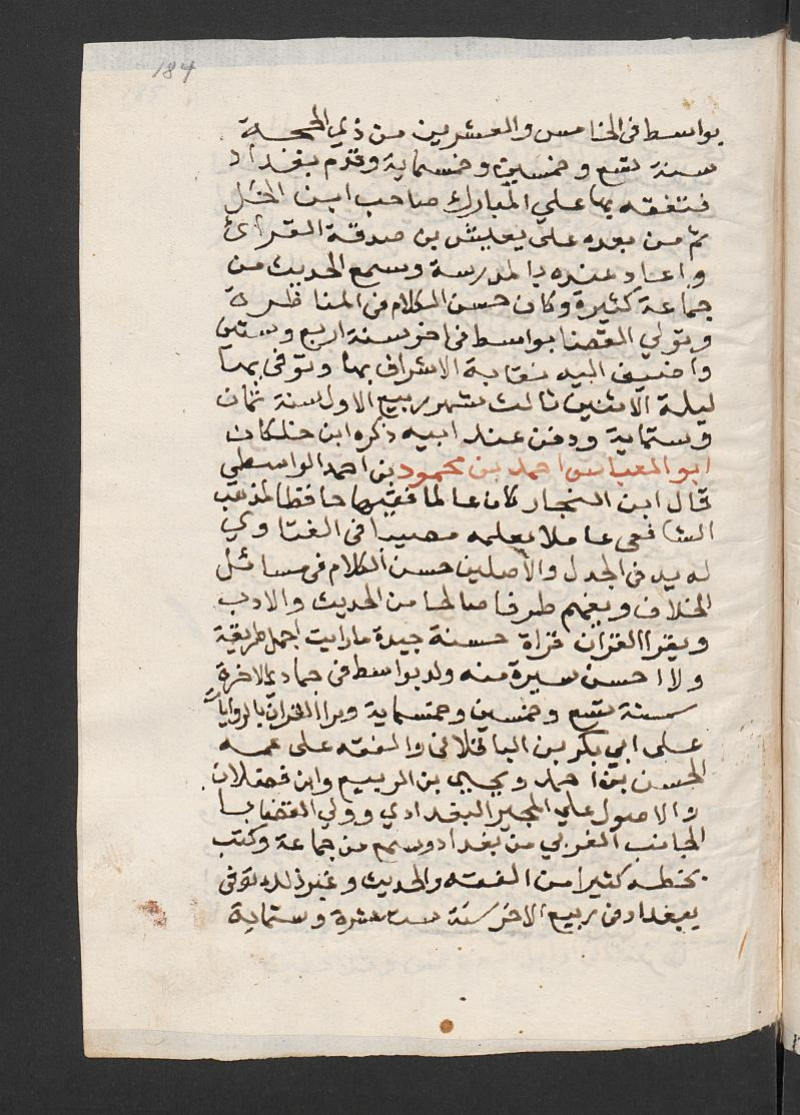 184
بواسط فى الخامس والعشرين من ذي الحجة
سنة تسع وخمسين وخمسماية وقدم بغداد
فتفقه بها على المبارك صاحب ابن الخل
ثم من بعده على يعيش بن صدقة الفراتى
واعاد عنده بالمدرسة وسمع الحديث من
جماعة كثيرة وكان حسن الكلام فى المناظرة
وتولي القضا بواسط فى اخر سنة اربع وستين
واضيف اليه نقابة الاشراف بها وتوفى بها
ليلة الاثنين ثالث شهر ربيع الاول سنة ثمان
وستماية ودفن عند ابيه ذكره ابن خلكان
ابو العباس احمد بن محمود بن احمد الواسطي
قال ابن النجار كان عالما فقيها حافظا لمذهب
الشافعى عاملا بعلمه مصيبا فى الفتاوي
له يد فى الجدل والأصلين حسن الكلام فى مسائل
الخلاف ويفهم طرفا صالحا من الحديث والادب
ويقرا القران قراة حسنة جيدة مارايت اجمل طريقة
ولا احسن سيرة منه ولد بواسط فى جمادي الاخرة
سنة تسع وخمسين وخمسماية وقرا القران بالروايات
على ابي بكر بن الباقلانى والفقه على عمه
الحسن بن احمد ويحيى بن الربيع وابن فضلان
والاصول على المجير البغدادي وولي القضا با
لجانب الغربي من بغداد وسمع من جماعة وكتب
بخطه كثيرا من الفقه والحديث وغير ذلك توفى
ببغداد فى ربيع الاخر سنة ست عشرة وستماية